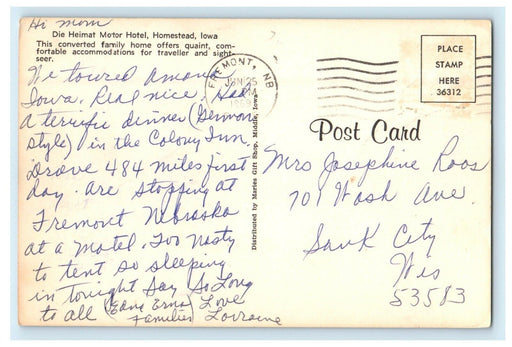 Hi mom
Die Heimat Motor Hotel, Homestead, Iowa
This converted family home offers quaint, com-
fortable accommodations for traveller and sight-
seer.
We toured Amana
Iowa. Real nice. Had
a terrific dinner (German
style) in the Colony Inn.
Drove 484 miles first
day. Are stopping at
Fremont Nebraska
at a motel. Too nasty
to tent so sleeping
in tonight Say So Long
to all (Edna Erna) Love
Families Lorraine
Distributed by Maries Gift Shop, Middle, Iowa
FREMONT, NB
JUN 25
1969
PLACE
STAMP
HERE
36312
Post Card
Mrs Josephine Roos
701 Wash Ave.
Sauk City
Wis
53583